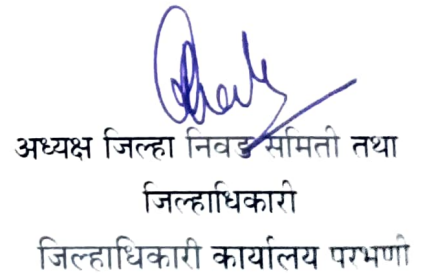 अध्यक्ष जिल्हा निवड समिती तथा
जिल्हाधिकारी
जिल्हाधिकारी कार्यालय परभणी